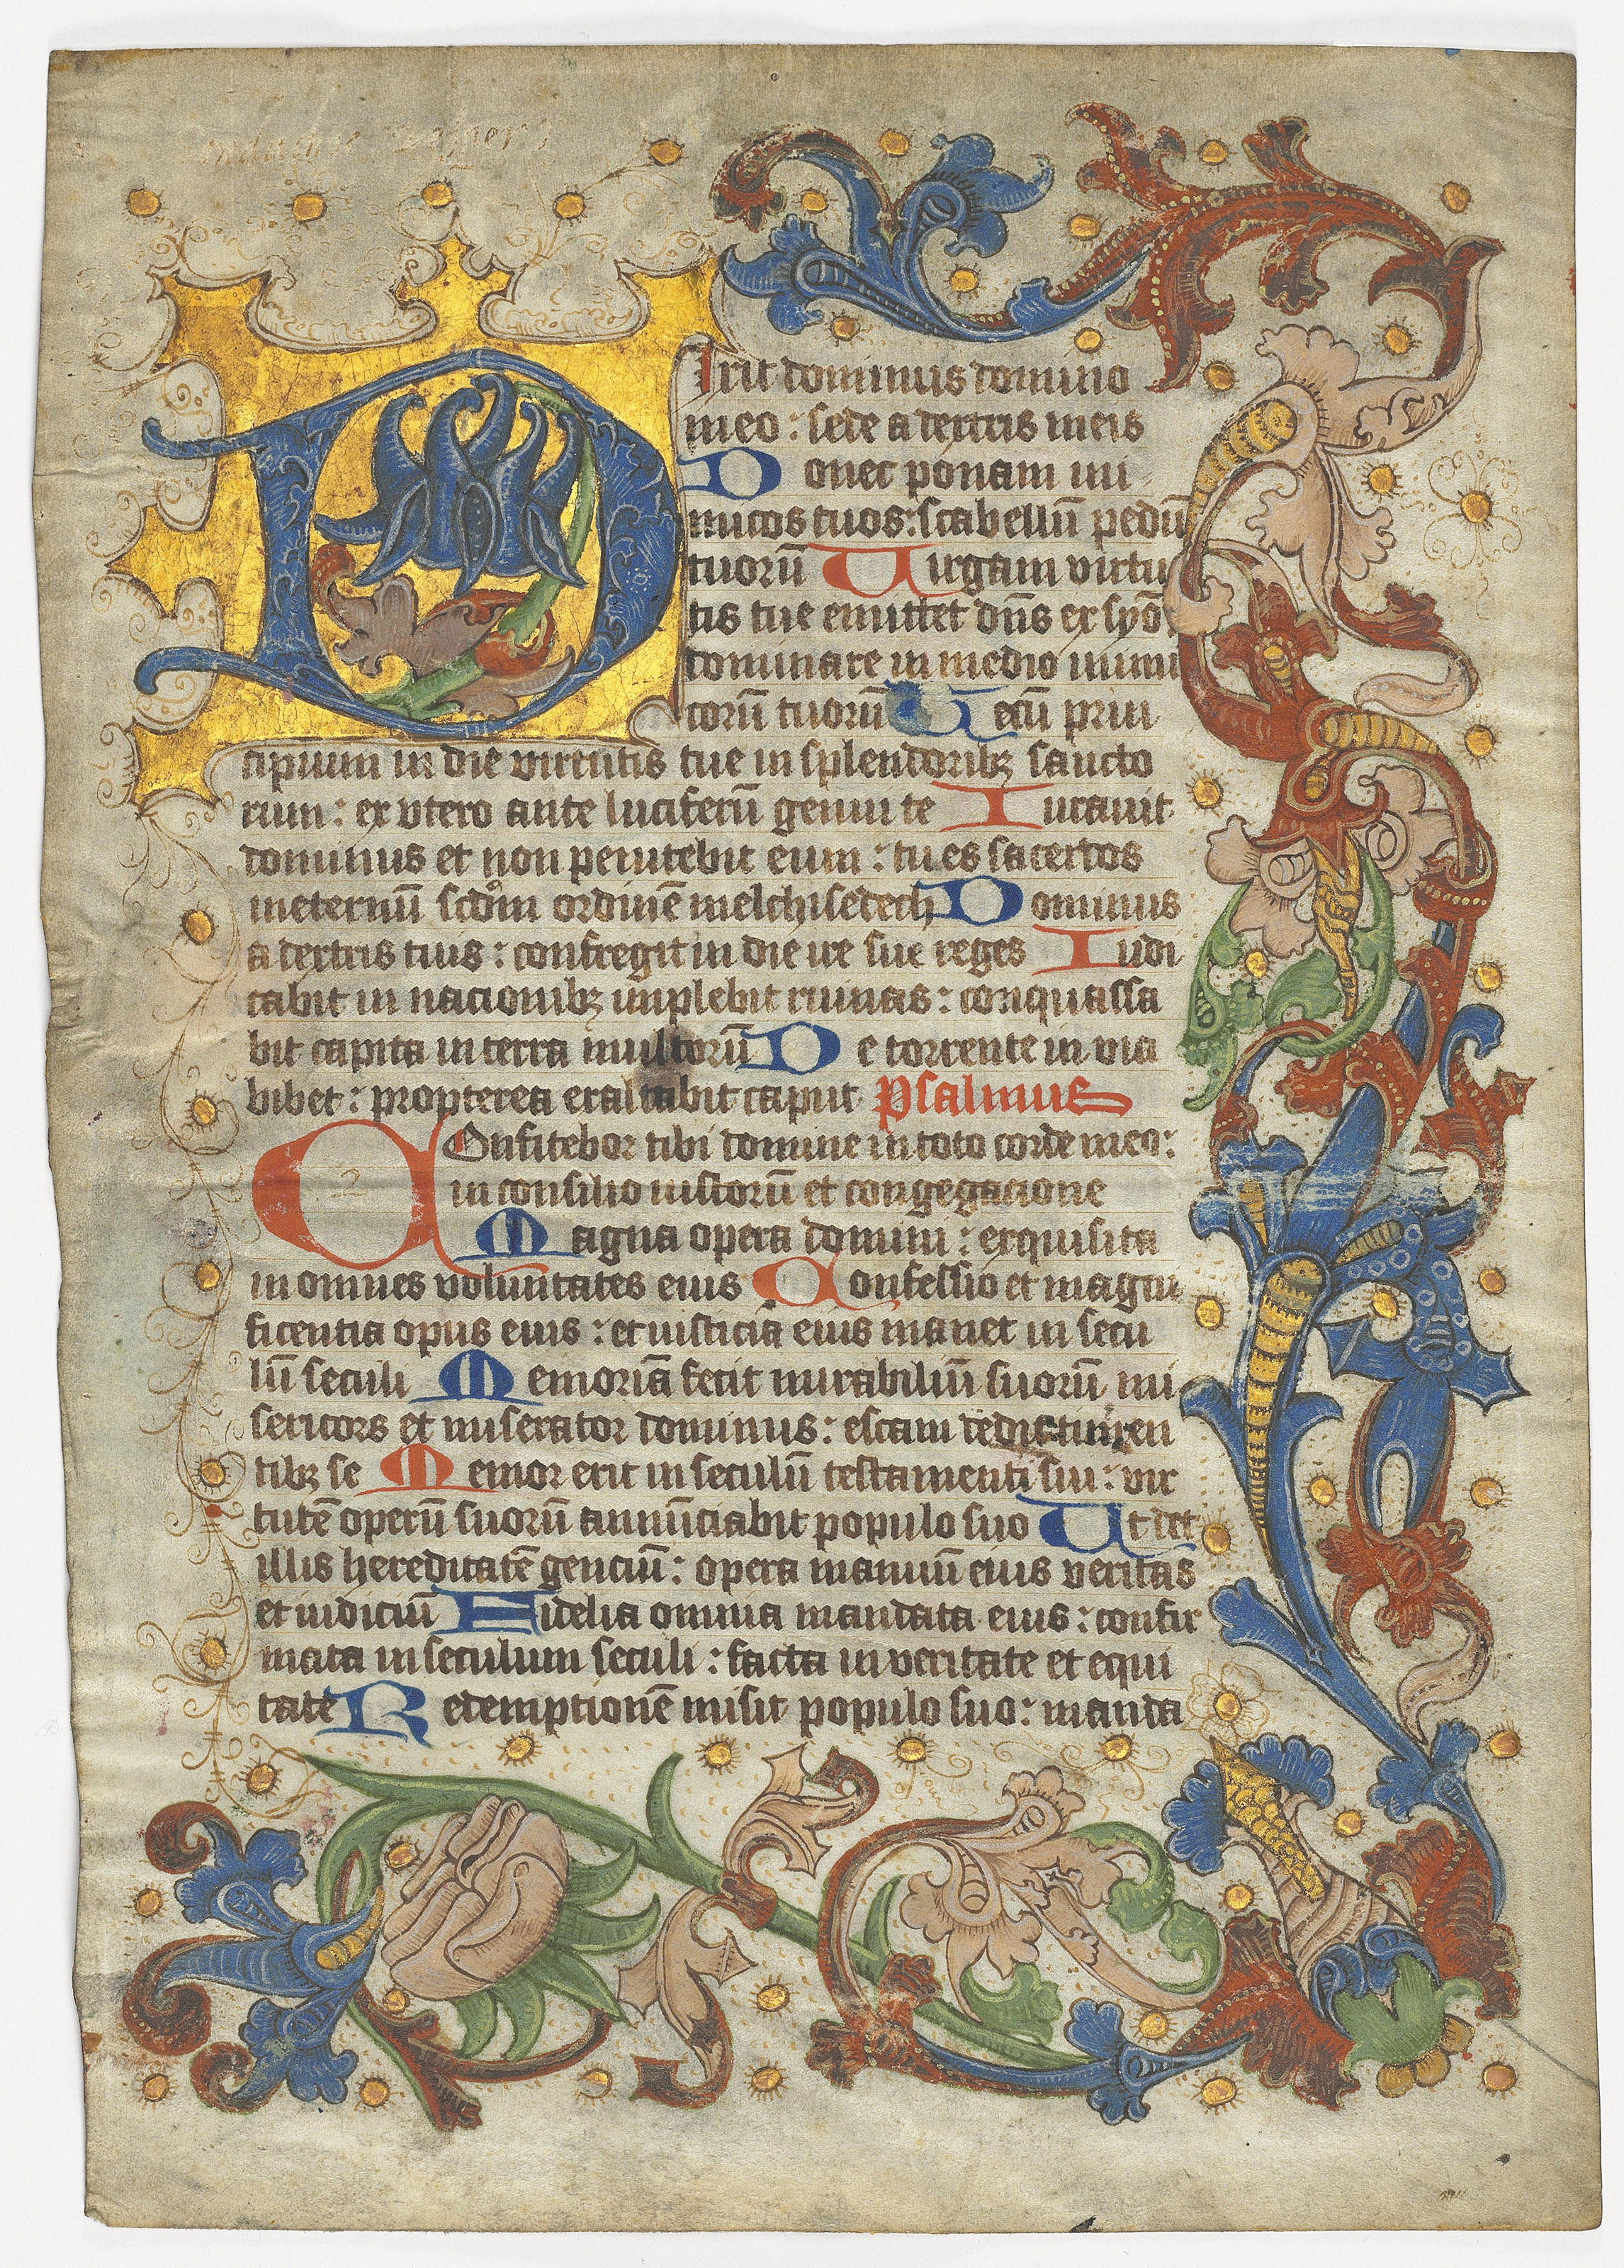 Dixit dominus domino
meo : sede a dextris meis
Donec ponam ini
micos tuos : scabellū pedū
tuorū Uirgam virtu
tis tue emittet dn̄s ex syō
dominare in medio inimi
corū tuorū Tecū prin
cipium in die virtutis tue in splendoribꝫ sancto
rum : ex vtero ante luciferū genui te Iurauit
dominus et non penitebit eum : tu es sacerdos
ineternū scd̄m ordinē melchisedech Dominus
a dextris tuis : confregit in die ire sue reges Iudi
cabit in nacionibꝫ implebit ruinas : conquassa
bit capita in terra multorū De torrente in via
bibet : propterea exaltabit caput Psalmus
Confitebor tibi domine in toto corde meo :
in consilio iustorū et congegacione
Magna opera domini : exquisita
in omnes voluntates eius Confessio et magni
ficentia opus eius : et iusticia eius manet in secu
lū seculi Memoriā fecit mirabiliū suorū mi
sericors et miserator dominus : escam dedit timen
tibꝫ se Memor erit in seculū testamenti sui : vir
tutē operū suorū annūciabit populo suo Ut det
illis hereditatē genciū : opera manuū eius veritas
et iudiciū Fidelia omnia mandata eius : confir
mata in seculum seculi : facta in veritate et equi
tate Redemptionē misit populo suo : manda